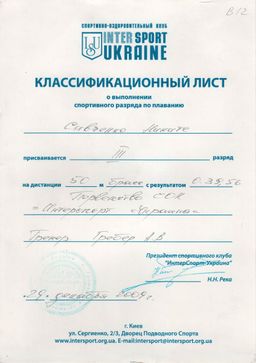 В12
СПОРТИВНО-ОЗДОРОВИТЕЛЬНЫЙ КЛУБ
INTER SPORT
UKRAINE
КЛАССИФИКАЦИОННЫЙ ЛИСТ
о выполнении
спортивного разряда по плаванию
Савченко Никите
присваивается III разряд
на дистанции 50 м брасс с результатом 0.39,56
Первенство СОК
"Интерспорт - Украина"
Тренер Гребер А.В
Президент спортивного клуба
"ИнтерСпорт-Украина"
Н.Н. Река
29 декабря 2009г.
г. Киев
ул. Сергиенко, 2/3, Дворец Подводного Спорта
www.intersport.org.ua, E-mail:intersport@intersport.org.ua